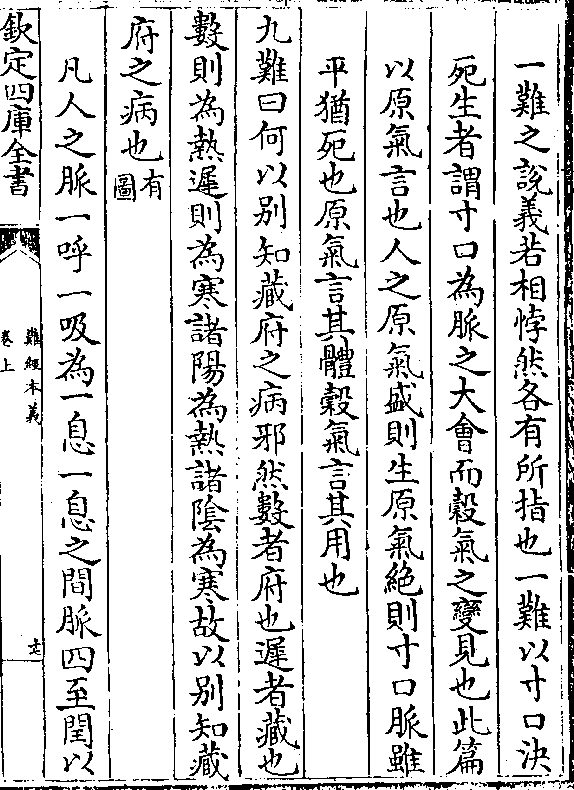 一難之說義若相悖然各有所指也一難以寸口決
死生者謂寸口為脈之大會而穀氣之變見也此篇
以原氣言也人之原氣盛則生原氣絶則寸口脈雖
平猶死也原氣言其體穀氣言其用也
九難曰何以别知藏府之病邪然數者府也遲者藏也
數則為熱遲則為寒諸陽為熱諸陰為寒故以别知藏
府之病也有圖
凡人之脈一呼一吸為一息一息之間脈四至閏以
欽定四庫全書
難經本義
卷上